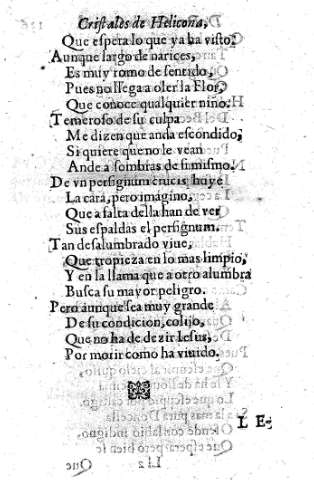 Cristales de Helicona,
Que espera lo que ya ha visto.
Aunque largo de narices,
Es muy romo de sentido,
Pues no llega a oler la Flor,
Que conoce qualquier niño.
Temeroso de su culpa
Me dizen que anda escondido,
Si quiere que no le vean
Ande a sombras de si mismo.
De vn persignum crucis huye
La cara, pero imagino,
Que a falta della han de ver
Sus espaldas el persignum.
Tan desalumbrado viue,
Que tropieza en lo mas limpio,
Y en la llama que a otro alumbra
Busca su mayor peligro.
Pero aunque sea muy grande
De su condicion, colijo,
Que no ha de dezir Iesus,
Por morir como ha viuido.
L E-